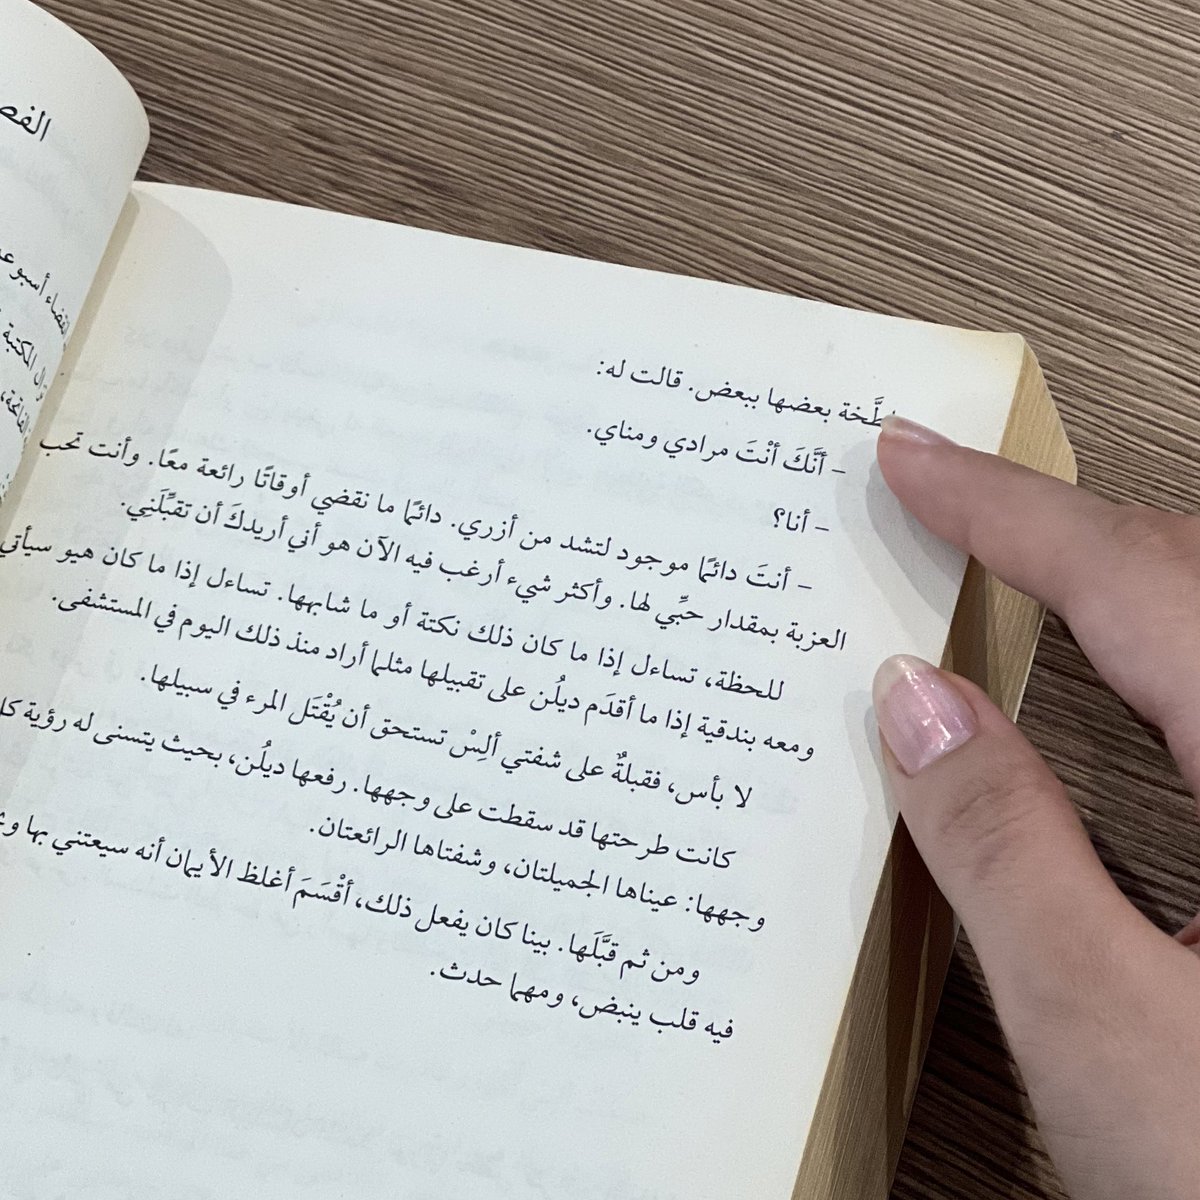 الفصـ
انقضاء أسبوعـ
المكتبة
الفاتحة،
ـطَّخة بعضها ببعض. قالت له:
– أنَّكَ أنْتَ مرادي ومناي.
– أنا؟
– أنتَ دائمًا موجود لتشد من أزري. دائمًا ما نقضي أوقاتًا رائعة معًا. وأنت تحب
العزبة بمقدار حبِّي لها. وأكثر شيء أرغب فيه الآن هو أني أريدكَ أن تقبِّلَنِي.
للحظة، تساءل إذا ما كان ذلك نكتة أو ما شابهها. تساءل إذا ما كان هيو سيأتي
ومعه بندقية إذا ما أقدَم ديلُن على تقبيلها مثلما أراد منذ ذلك اليوم في المستشفى.
لا بأس، فقبلةٌ على شفتي ألِسْ تستحق أن يُقْتَل المرء في سبيلها.
كانت طرحتها قد سقطت على وجهها. رفعها ديلُن، بحيث يتسنى له رؤية كل
وجهها: عيناها الجميلتان، وشفتاها الرائعتان.
ومن ثم قبَّلَها. بينا كان يفعل ذلك، أقْسَمَ أغلظ الأيمان أنه سيعتني بها و
فيه قلب ينبض، ومهما حدث.